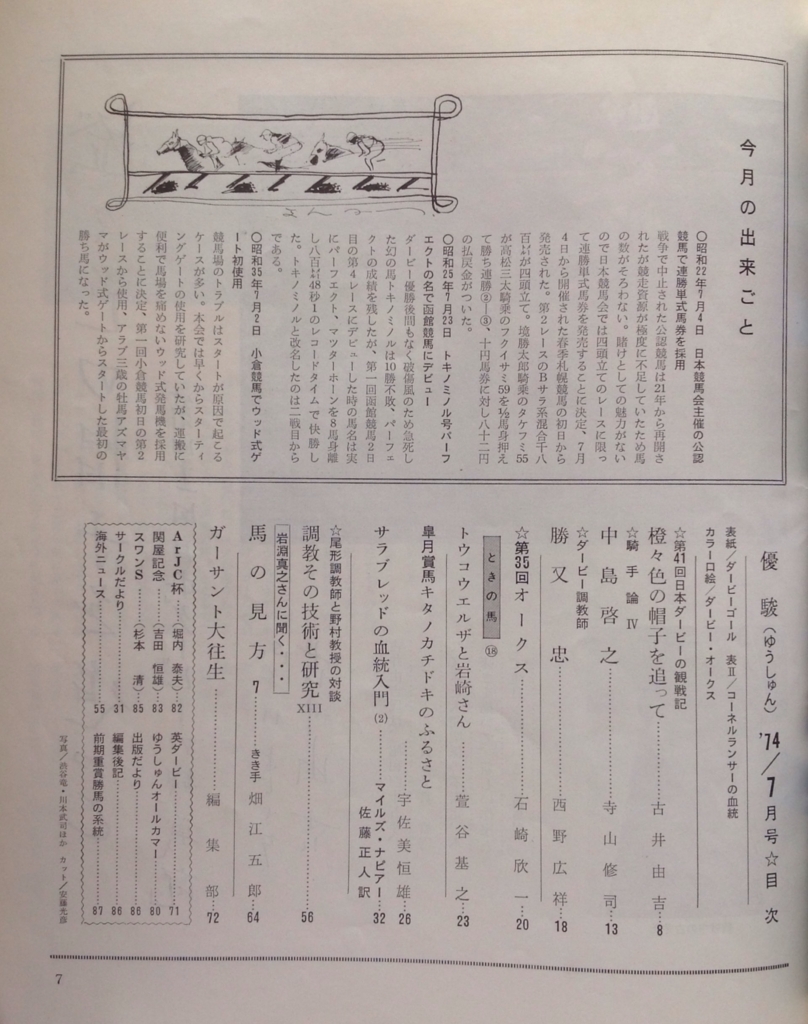 今月の出来ごと
○昭和22年7月4日 日本競馬会主催の公認
競馬で連勝単式馬券を採用
戦争で中止された公認競馬は21年から再開さ
れたが競走資源が極度に不足していたため馬
の数がそろわない。賭けとしての魅力がない
ので日本競馬会では四頭立てのレースに限っ
て連勝単式馬券を発売することに決定、7月
4日から開催された春季札幌競馬の初日から
発売された。第2レースのBサラ系混合千八
百㍍が四頭立て。境勝太郎騎乗のタケフミ55
が高松三太騎乗のフクイサミ59を½馬身押え
て勝ち連勝②―③、十円馬券に対し八十二円
の払戻金がついた。
○昭和25年7月23日 トキノミノル号パーフ
エクトの名で函館競馬にデビュー
ダービー優勝後間もなく破傷風のため急死し
た幻の馬トキノミノルは10勝不敗、パーフェ
クトの成績を残したが、第一回函館競馬2日
目の第4レースにデビューした時の馬名は実
にパーフエクト、マツターホーンを8馬身離
し八百㍍48秒1のレコードタイムで快勝し
た。トキノミノルと改名したのは二戦目から
である。
○昭和35年7月2日 小倉競馬でウッド式ゲ
ート初使用
競馬場のトラブルはスタートが原因で起こる
ケースが多い。本会では早くからスターティ
ングゲートの使用を研究していたが、運搬に
便利で馬場を痛めないウッド式発馬機を採用
することに決定、第一回小倉競馬初日の第2
レースから使用、アラブ三歳の牡馬アズマヤ
マがウッド式ゲートからスタートした最初の
勝ち馬になった。
優駿(ゆうしゅん) '74/7月号☆目次
表紙/ダービーゴール 表Ⅱ/コーネルランサーの血統
カラー口絵/ダービー・オークス
☆第41回日本ダービーの観戦記
橙々色の帽子を追って……古井由吉…8
☆騎手論 Ⅳ
中島啓之……寺山修司…13
☆ダービー調教師
勝又 忠……西野広祥…18
☆第35回オークス……石崎欣一…20
ときの馬 ⑱
トウコウエルザと岩崎さん……萱谷基之…23
皐月賞馬キタノカチドキのふるさと
……宇佐美恒雄…26
サラブレッドの血統入門(2)……マイルズ・ナピアー
佐藤正人訳…32
☆尾形調教師と野村教授の対談
調教その技術と研究 XIII……56
岩淵真之さんに聞く・・・
馬の見方 7……きき手 畑江五郎…64
ガーサント大往生……編集部…72
ArJC杯……(堀内 泰夫)…82
関屋記念……(吉田 恒雄)…83
スワンS……(杉本 清)…85
サークルだより……31
海外ニュース……55
英ダービー……71
ゆうしゅんオールカマー……80
出版だより……86
編集後記……86
前期重賞勝馬の系統……87
写真/渋谷竜・川本武司ほか カット/安藤光彦
7